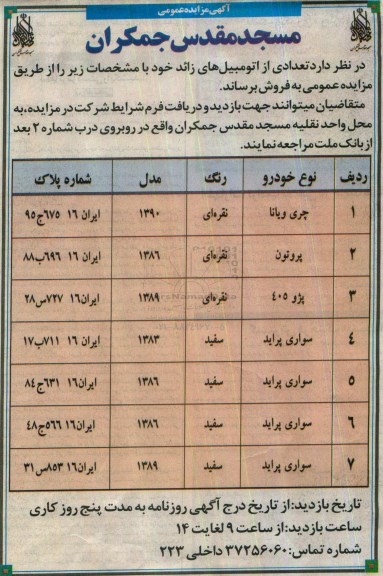 آگهی مزایده عمومی
مسجد مقدس جمکران
در نظر دارد تعدادی از اتومبیل‌های زائد خود با مشخصات زیر را از طریق
مزایده عمومی به فروش برساند.
متقاضیان میتوانند جهت بازدید و دریافت فرم شرایط شرکت در مزایده، به
محل واحد نقلیه مسجد مقدس جمکران واقع در روبروی درب شماره ۲ بعد
از بانک ملت مراجعه نمایند.
ردیف نوع خودرو رنگ مدل شماره پلاک
۱ چری ویانا نقره‌ای ۱۳۹۰ ایران ۱۶ ۶۷۵ج۹۵
۲ پروتون نقره‌ای ۱۳۸۶ ایران ۱۶ ۶۹۶ب۸۸
۳ پژو ۴۰۵ نقره‌ای ۱۳۸۹ ایران۱۶ ۷۲۷س۲۸
۴ سواری پراید سفید ۱۳۸۳ ایران ۱۶ ۷۱۱ب۱۷
۵ سواری پراید سفید ۱۳۸۶ ایران۱۶ ۶۳۱ج۸۴
۶ سواری پراید سفید ۱۳۸۶ ایران۱۶ ۵۶۶ج۴۸
۷ سواری پراید سفید ۱۳۸۹ ایران۱۶ ۸۵۳س۳۱
تاریخ بازدید: از تاریخ درج آگهی روزنامه به مدت پنج روز کاری
ساعت بازدید: از ساعت ۹ لغایت ۱۴
شماره تماس: ۳۷۲۵۶۰۶۰ داخلی ۲۲۳